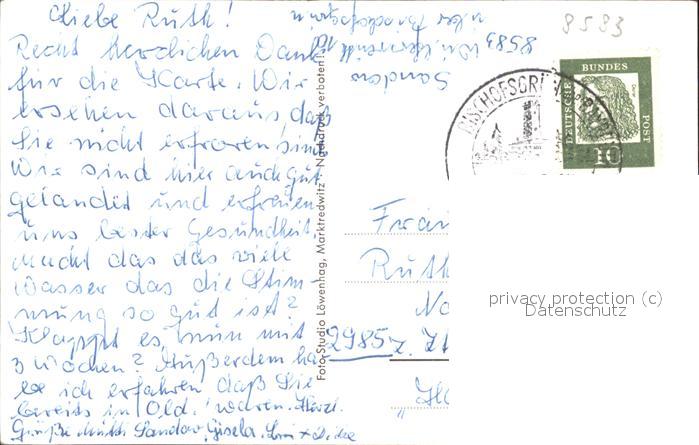 Liebe Ruth!
Recht herzlichen Dank
für die Karte. Wir
ersehen daraus, daß
Sie nicht erfroren sind.
Wir sind hier auch gut
gelandet und erfreuen
uns bester Gesundheit.
Macht das das viele
Wasser das die Stim-
mung so gut ist?
Klappt es nun mit
3 Wochen? Außerdem ha-
be ich erfahren daß Sie
bereits in Old. waren. Herzl.
Grüße Sandow, Gisela,
Sandow
8583
über Bischofsgrün
8583
BISCHOFSGRÜN
DEUTSCHE BUNDES POST
Dürer
10
Foto-Studio Löwenhag, Marktredwitz - Nachdruck verboten!
Fräu
Ruth
No
2985
privacy protection (c)
Datenschutz